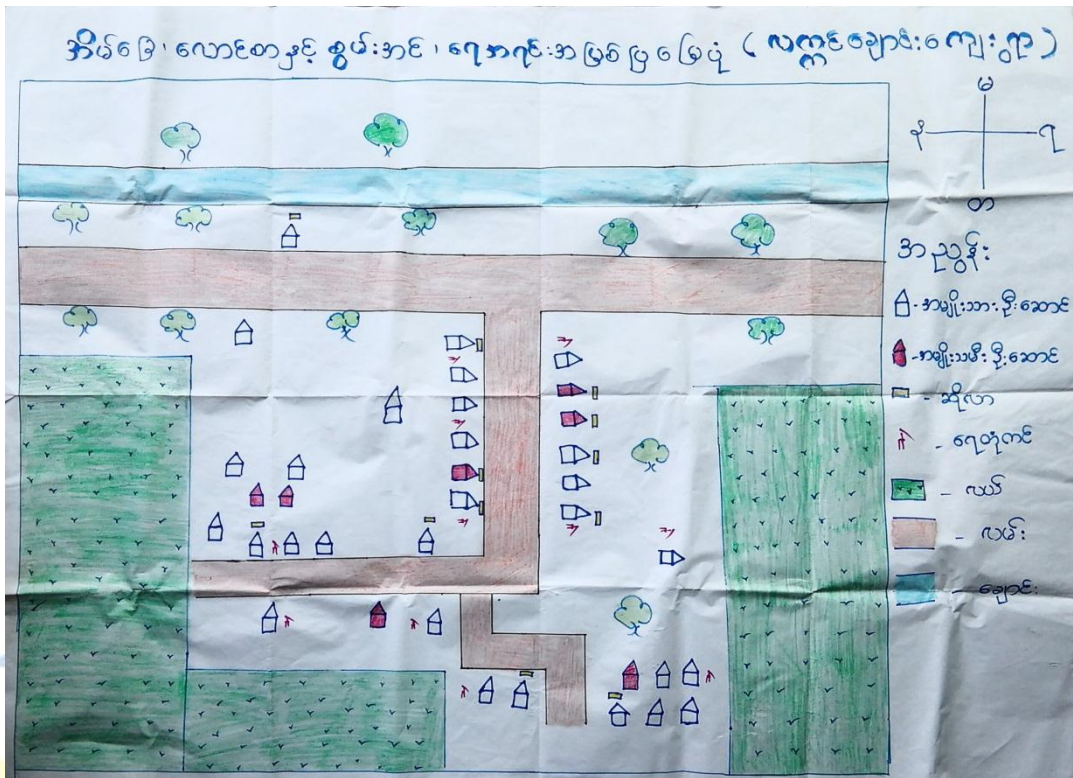 အိမ်ခြေ၊ လောင်စာနှင့် စွမ်းအင်၊ ရေအရင်းအမြစ်ပြမြေပုံ (လက္ကင်ချောင်းကျေးရွာ)
မ
န ရ
တ
အညွှန်း
- အမျိုးသားဦးဆောင်
- အမျိုးသမီးဦးဆောင်
- ဆိုလာ
- ရေတုံကင်
- လယ်
- လမ်း
- ချောင်း